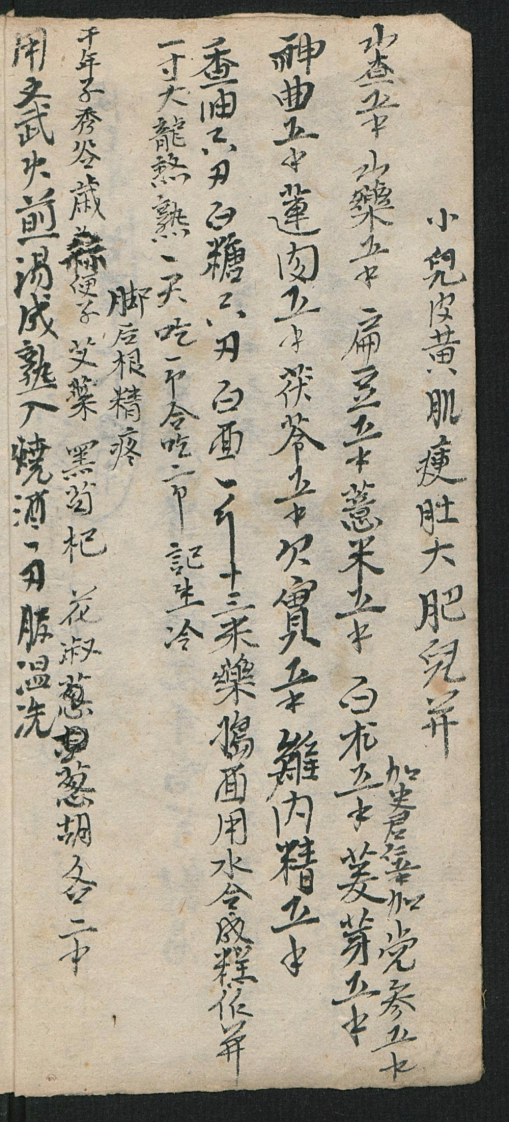 小兒皮黃肌瘦肚大肥兒并
加史君仁五 加党参五中
山查五中 山藥五中 扁豆五中 薏米五中 白朮五中 菱芽五中
神曲五中 蓮肉五中 茯苓五中 欠實五中 雞內精五中
香油六刃 白糖六刃 白面一斤 十三米藥 面用水合成糕作并
一寸大龍熬熟 一天吃一个 令吃二个 記生冷
脚后根精疼
千年子秀苓葴 便子 艾藥 黑苟杞 花淑 葱胡各二中
用文武火煎湯成熟入燒酒一刃服温洗